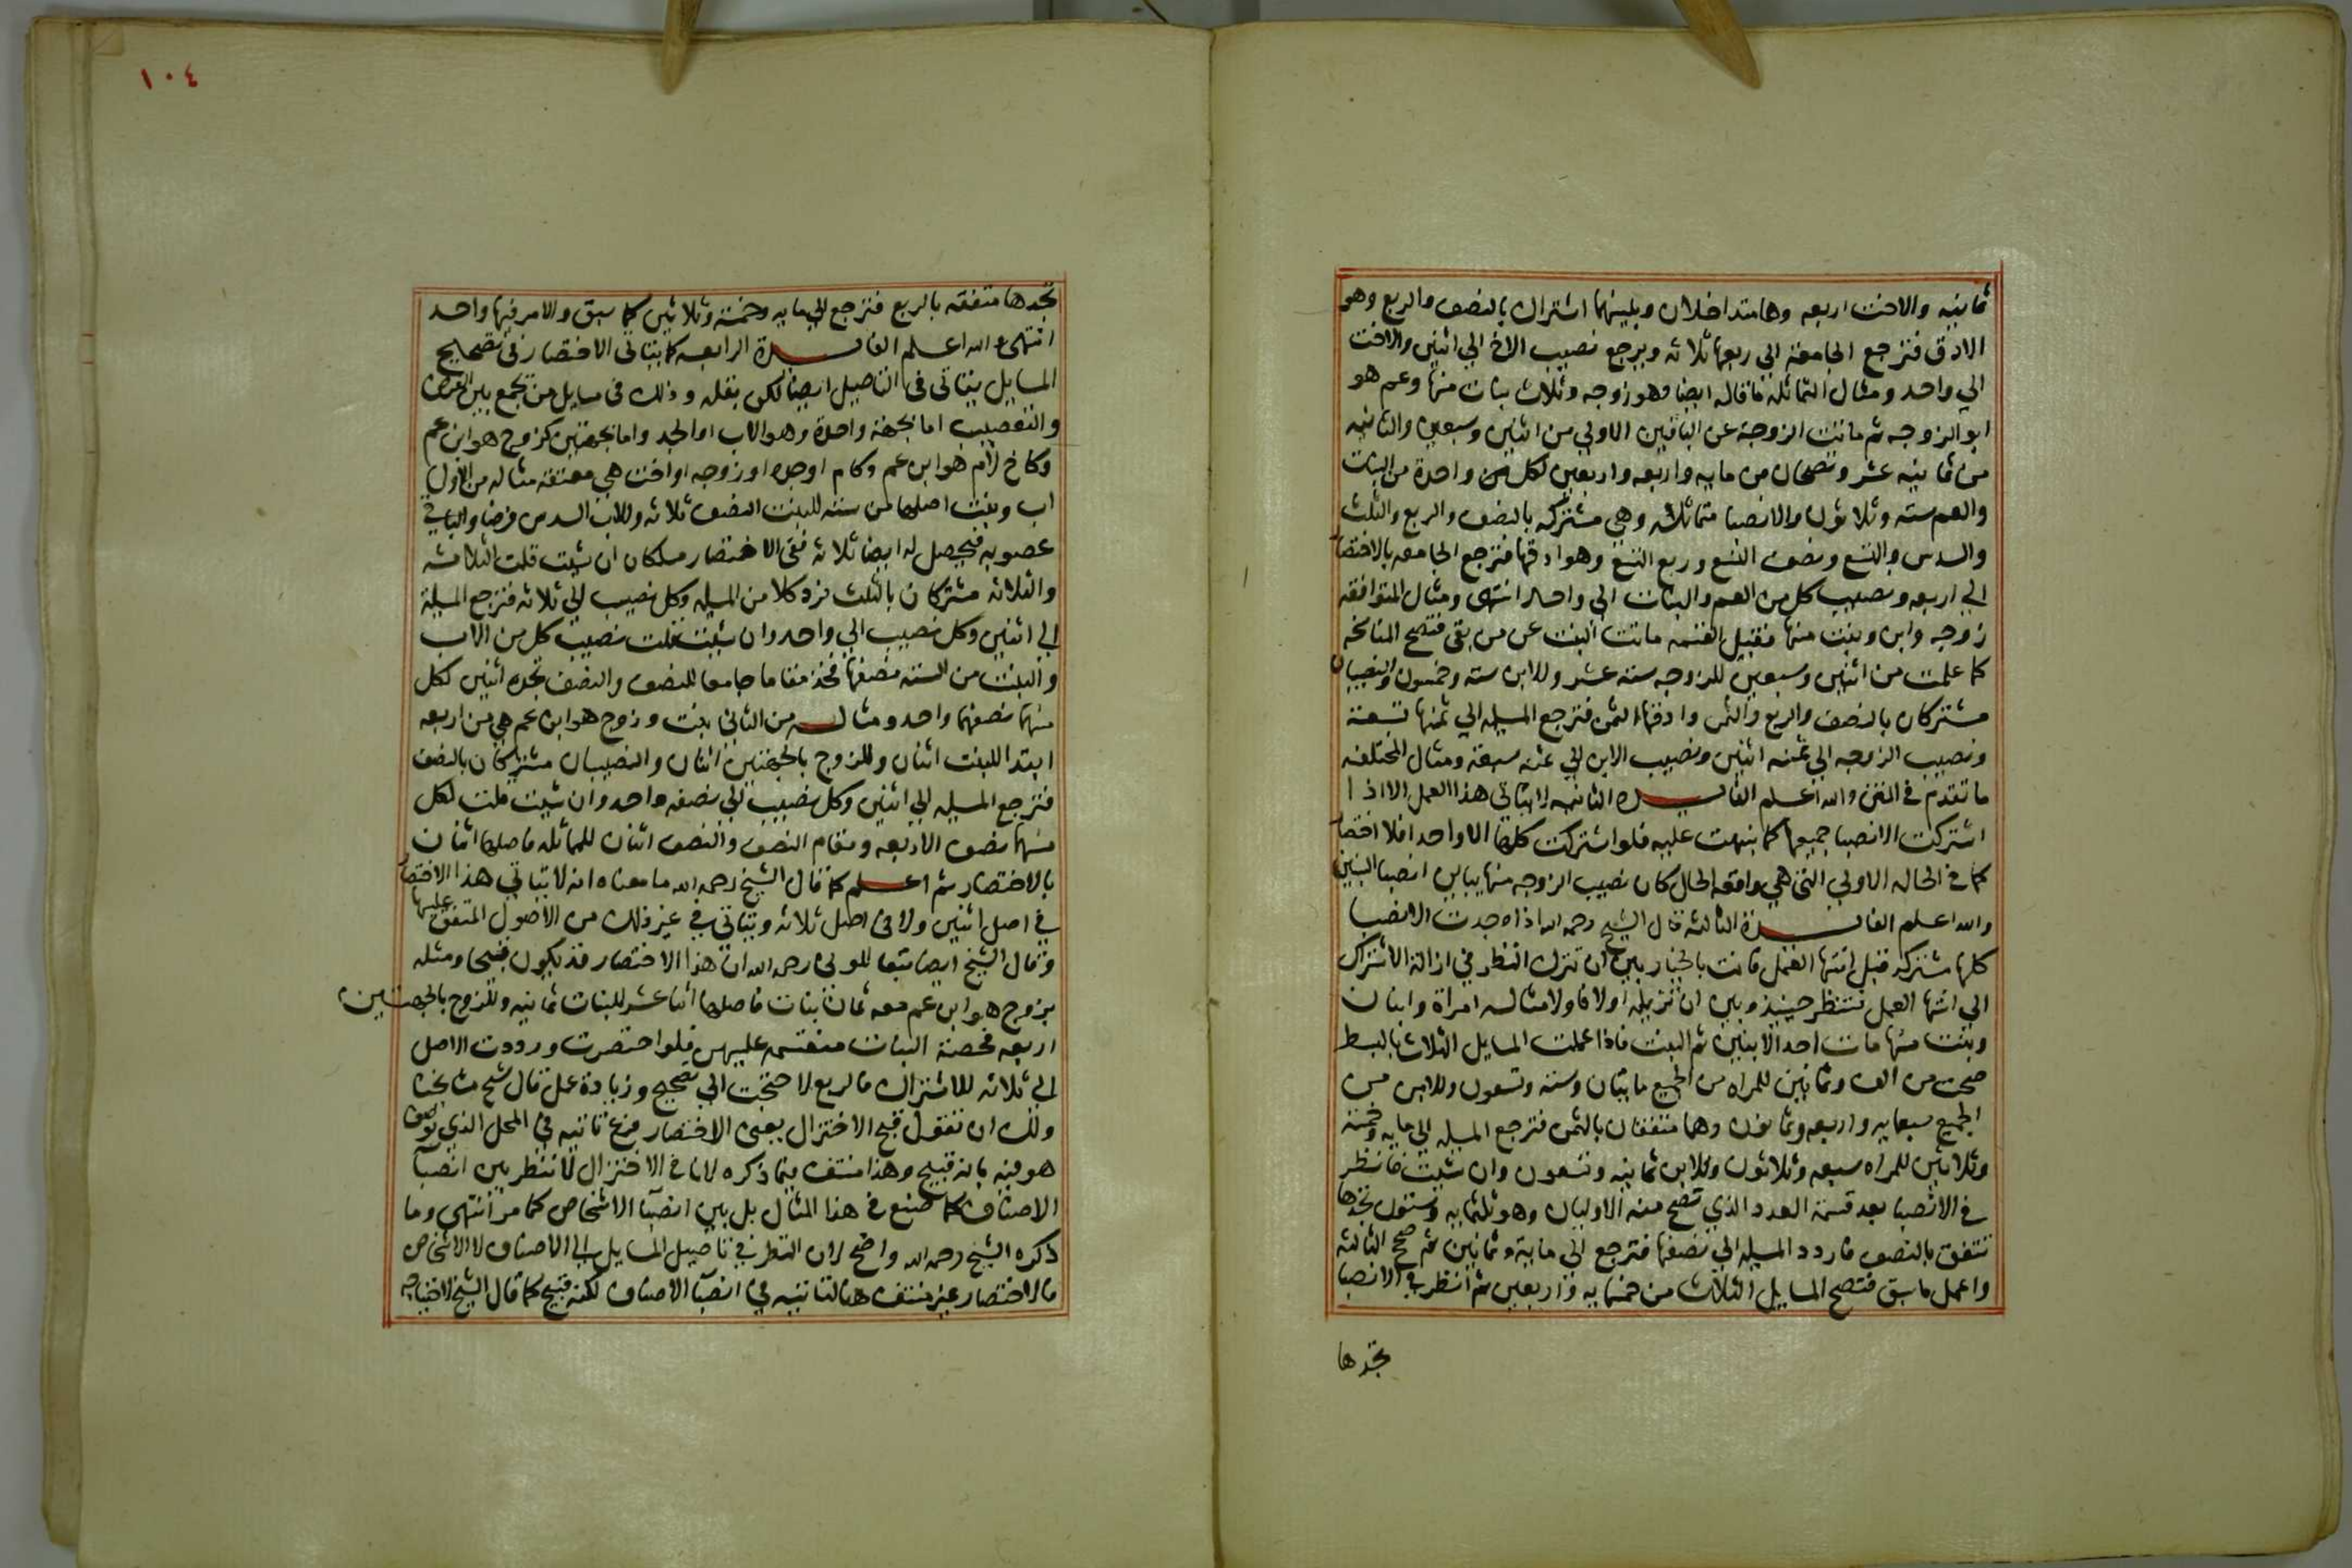 ثمانيه والاخت اربعه وهما متداخلان وبينهما اشتراك بالنصف والربع وهو
الادق فترجع الجامعة الي ربعها ثلاثه ويرجع نصيب الاخ الي اثنين والاخت
الي واحد ومثال التماثل ما قاله ايضا وهو زوجه وثلاث بنات منها وعم هو
ابو الزوجه ثم ماتت الزوجة عن الباقين الاولي من اثنين وسبعين والثانيه
من ثمانيه عشر وتصحان من مايه واربعه واربعين لكل واحدة من البنات
والعم سته وثلاثون والانصبا متماثلة وهي مشتركه بالنصف والربع والثلث
والسدس والتسع ونصف التسع وربع التسع وهو ادقها فترجع الجامعه بالاختصار
الي اربعه ونصيب كل من العم والبنات الي واحد انتهى ومثال المتوافقه
زوجه وابن وبنت منها فقبيل القسمه ماتت البنت عن من بقي فتصح المناسخه
كما علمت من اثنين وسبعين للزوجه سته عشر وللابن سته وخمسون والنصيبان
مشتركان بالنصف والربع والثمن وادقها الثمن فترجع المسيله الي ثمنها تسعة
ونصيب الزوجه الي ثمنه اثنين ونصيب الابن الي ثمنه سبعة ومثال المختلفه
ما تقدم في المتن والله اعلم الفايدة الثانيه لا يتاتي هذا العمل الا اذا
اشتركت الانصبا جميعها كما نبهت عليه فلو اشتركت كلها الا واحدا فلا اختصار
كما في الحاله الاولي التي هي واقعه الحال كان نصيب الزوجه منها يباين انصبا البنين
والله اعلم الفايدة الثالثه قال الشيخ رحمه الله اذا وجدت الانصبا
كلها مشتركه قبل انتها العمل فانت بالخيار بين ان تترك النظر في ازالة الاشتراك
الي انتها العمل فتنظر حينيذ وبين ان تزيله اولا فاولا مثاله امراة وابنان
وبنت منها مات احد الابنين ثم البنت فاذا عملت المسايل الثلاث بالبسط
صحت من الف وثمانين للمراه من الجميع مايتان وسته وتسعون وللابن من
الجميع سبعمايه واربعه وثمانون وهما متفقان بالثمن فترجع المسيله الي مايه وخمسة
وثلاثين للمراه سبعه وثلاثون وللابن ثمانيه وتسعون وان شيت فانظر
في الانصبا بعد قسمة العدد الذي تصح منه الاوليان وهو ثلثمايه وستون تجدها
تتفق بالنصف فاردد المسيله الي نصفها فترجع الي مايه وثمانين ثم صحح الثالثه
واعمل ما سبق فتصح المسايل الثلاث من خمسمايه واربعين ثم انظر في الانصبا
تجدها
١٠٤
تجدها متفقه بالربع فترجع الي مايه وخمسة وثلاثين كما سبق والامر فيها واحد
انتهى والله اعلم الفايدة الرابعه كما يتاتى الاختصار في تصحيح
المسايل يتاتى في التاصيل ايضا لكن بقله وذلك في مسايل من يجمع بين الفرض
والتعصيب اما بجهة واحدة وهو الاب او الجد واما بجهتين كزوج هو ابن عم
وكاخ لام هو ابن عم وكام او جدة او زوجه او اخت هي معتقة مثاله من الاول
اب وبنت اصلها من سته للبنت النصف ثلاثه وللاب السدس فرضا والباقي
عصوبه فيحصل له ايضا ثلاثه ففي الاختصار مسلكان ان شيت قلت الثلاثه
والثلاثه مشتركان بالثلث فرد كلا من المسيله وكل نصيب الي ثلثه فترجع المسيلة
الي اثنين وكل نصيب الي واحد وان شيت قلت نصيب كل من الاب
والبنت من الستة نصفها فخذ مقاما جامعا للنصف والنصف تجده اثنين لكل
منهما نصفها واحد ومثاله من الثاني بنت وزوج هو ابن عم هي من اربعه
ابتدا للبنت اثنان وللزوج بالجهتين اثنان والنصيبان مشتركان بالنصف
فترجع المسيله الي اثنين وكل نصيب الي نصفه واحد وان شيت قلت لكل
منهما نصف الاربعه ومقام النصف والنصف اثنان للمماثله فاصلها اثنان
بالاختصار ثم اعلم كما قال الشيخ رحمه الله ما معناه انه لا يتاتي هذا الاختصار
في اصل اثنين ولا في اصل ثلاثه ويتاتي في غير ذلك من الاصول المتفق عليها
وقال الشيخ ايضا تبعا للوني رحمه الله ان هذا الاختصار قد يكون قبيحا ومثله
بزوج هو ابن عم معه ثمان بنات فاصلها اثنا عشر للبنات ثمانيه وللزوج بالجهتين
اربعه فحصة البنات منقسمه عليهن فلو اختصرت ورددت الاصل
الي ثلاثه للاشتراك بالربع لاحتجت الي تصحيح وزيادة عمل قال شيخ مشايخنا
ولك ان تقول قبح الاختزال بمعنى الاختصار فرع تاتيه في المحل الذي توصف
هو فيه بانه قبيح وهذا منتف فيما ذكره لانا في الاختزال لا ننظر بين انصبآ
الاصناف كما صنع في هذا المثال بل بين انصبآ الاشخاص كما مر انتهى وما
ذكره الشيخ رحمه الله واضح لان النظر في تاصيل المسايل الي الاصناف لا الاشخاص
فالاختصار غير منتف هنا لتاتيه في انصبآ الاصناف لكنه قبيح كما قال الشيخ لاحتياجه